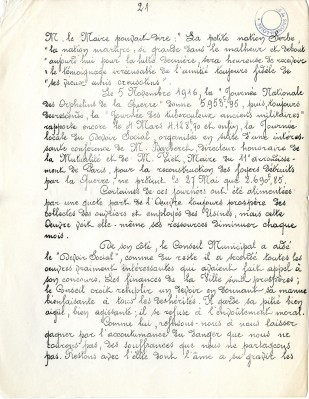 21
M. le Maire pouvait dire : " La petite nation Serbe,
" la nation martyre, si grande dans le malheur et debout
" aujourd'hui pour la lutte dernière, sera heureuse de recevoir
" le témoignage irrécusable de l'amitié toujours fidèle de
" ses vieux amis
Le 5 Novembre 1916, la "Journée Nationale
des Orphelins de la Guerre" donne 5.953f,95, puis, toujours
la "Journée des tuberculeux, anciens militaires"
rapporte encore le 1 Mars 4.128f,70 et, enfin, la Journée
locale du Devoir Social, organisée en suite d'une intéres-
sante conférence de M. directeur honoraire de
la Mutualité et de M. Maire du 11e arrondisse-
ment de Paris, pour la reconstruction des foyers détruits
par la Guerre, ne produit le 27 Mai que 2.690f,85.
Certaines de ces journées ont été alimentées
par une quote part de l'Oeuvre toujours prospère des
collectes des ouvriers et employés des Usines, mais cette
Oeuvre voit elle-même ses ressources diminuer chaque
mois.
De son côté, le Conseil Municipal a aidé
le "Devoir Social", comme du reste il a secouru toutes les
œuvres vraiment intéressantes qui avaient fait appel à
son concours. Les finances de la Ville sont prospères ;
le Conseil croit remplir un devoir en donnant sa manne
bienfaisante à tous les déshérités. Il garde sa pitié bien
aiguë, bien agissante ; il se refuse à l'envoûtement moral.
Comme lui, refusons-nous à nous laisser
gagner par l'accoutumance du danger que nous ne
courons pas, des souffrances que nous ne partageons
pas. Restons avec l'élite dont l'âme a su gravir les